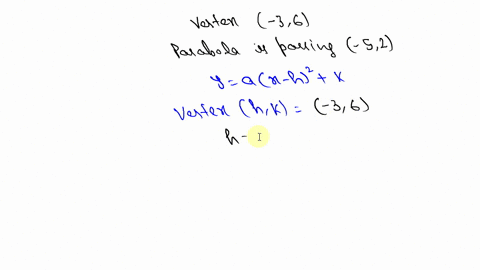 Vertex (-3,6)
Parabola is passing (-5,2)
y = a(x-h)² + k
Vertex (h,k) = (-3,6)
h-